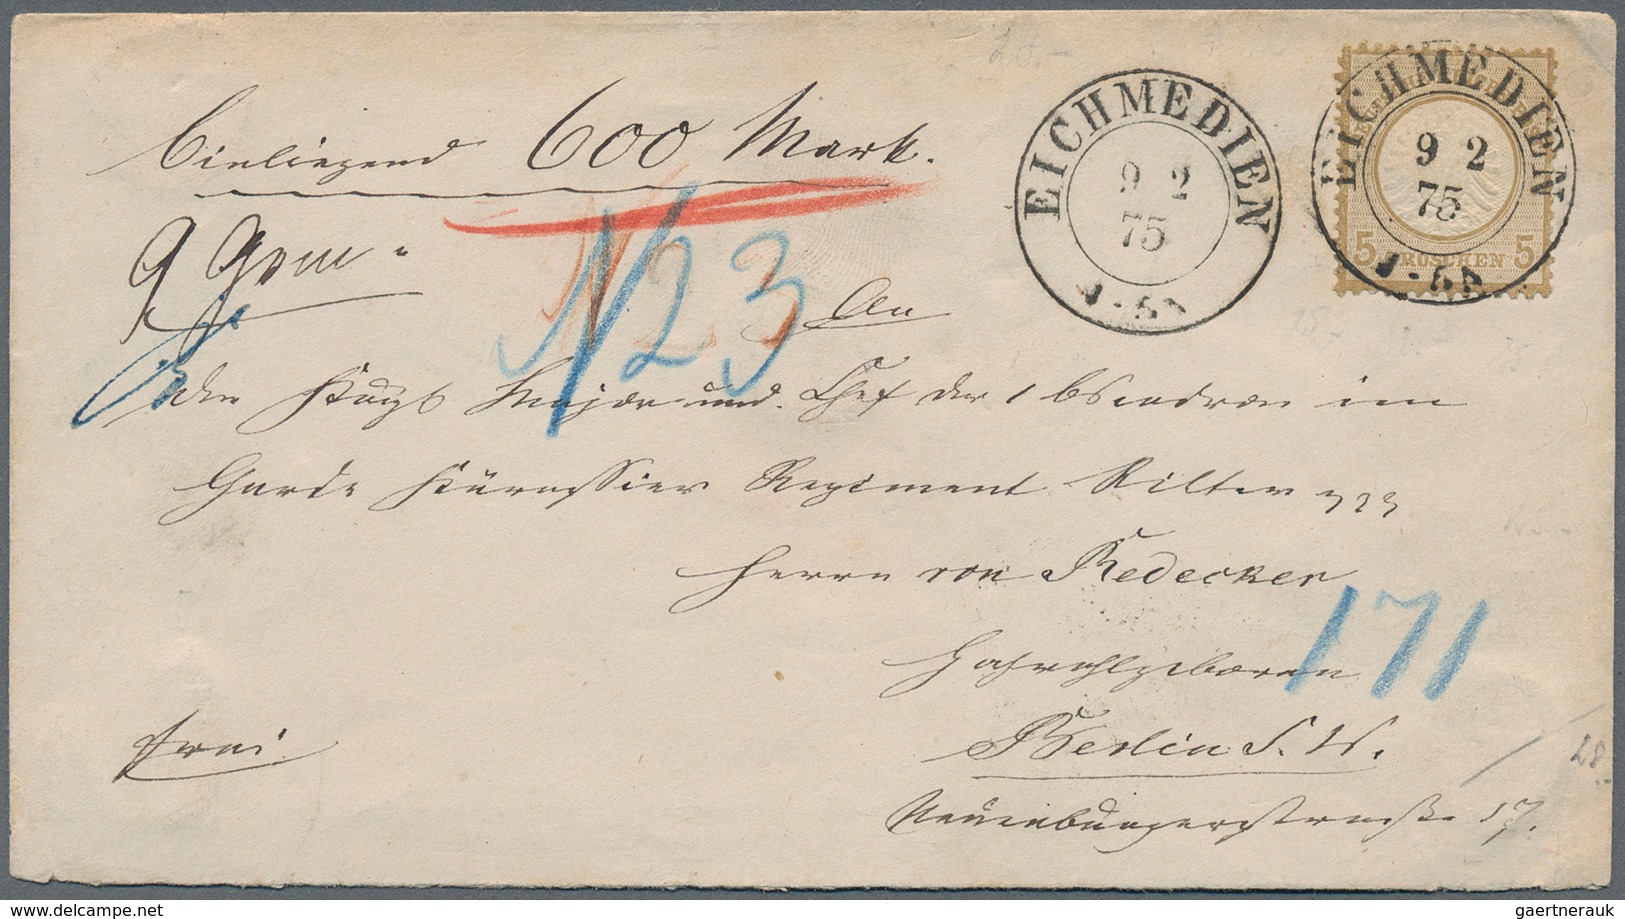 Einliegend 600 Mark.
9 Grm.
EICHMEDIEN
9 2
75
EICHMEDIEN
9 2
75
5 GROSCHEN 5
N 23
An
den Königl. Major und Chef der 1 Escadron im
Garde Kürassier Regiment Ritter
Herrn von Redecker
Hochwohlgeboren
171
frei
Berlin S. W.
28.-
17.
delcampe.net
gaertnerauk